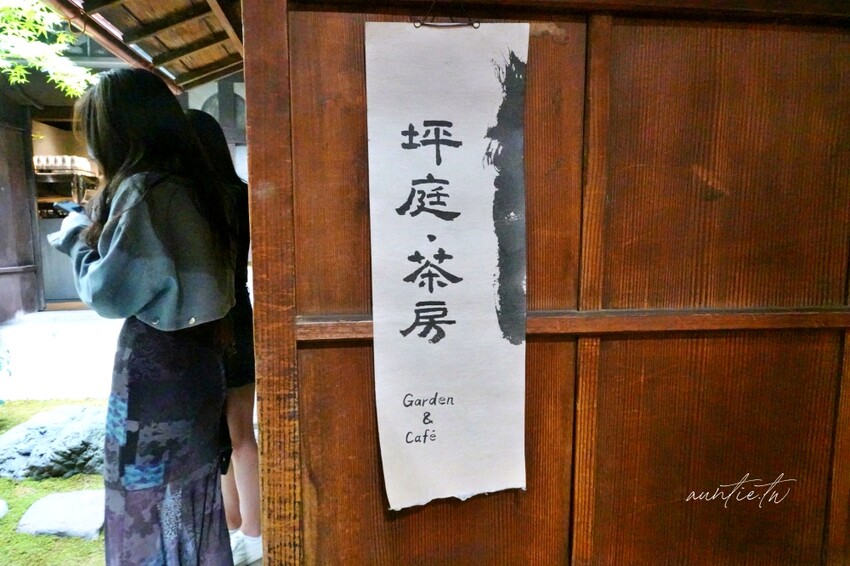 坪庭・茶房
Garden
&
Café
auntie.tw